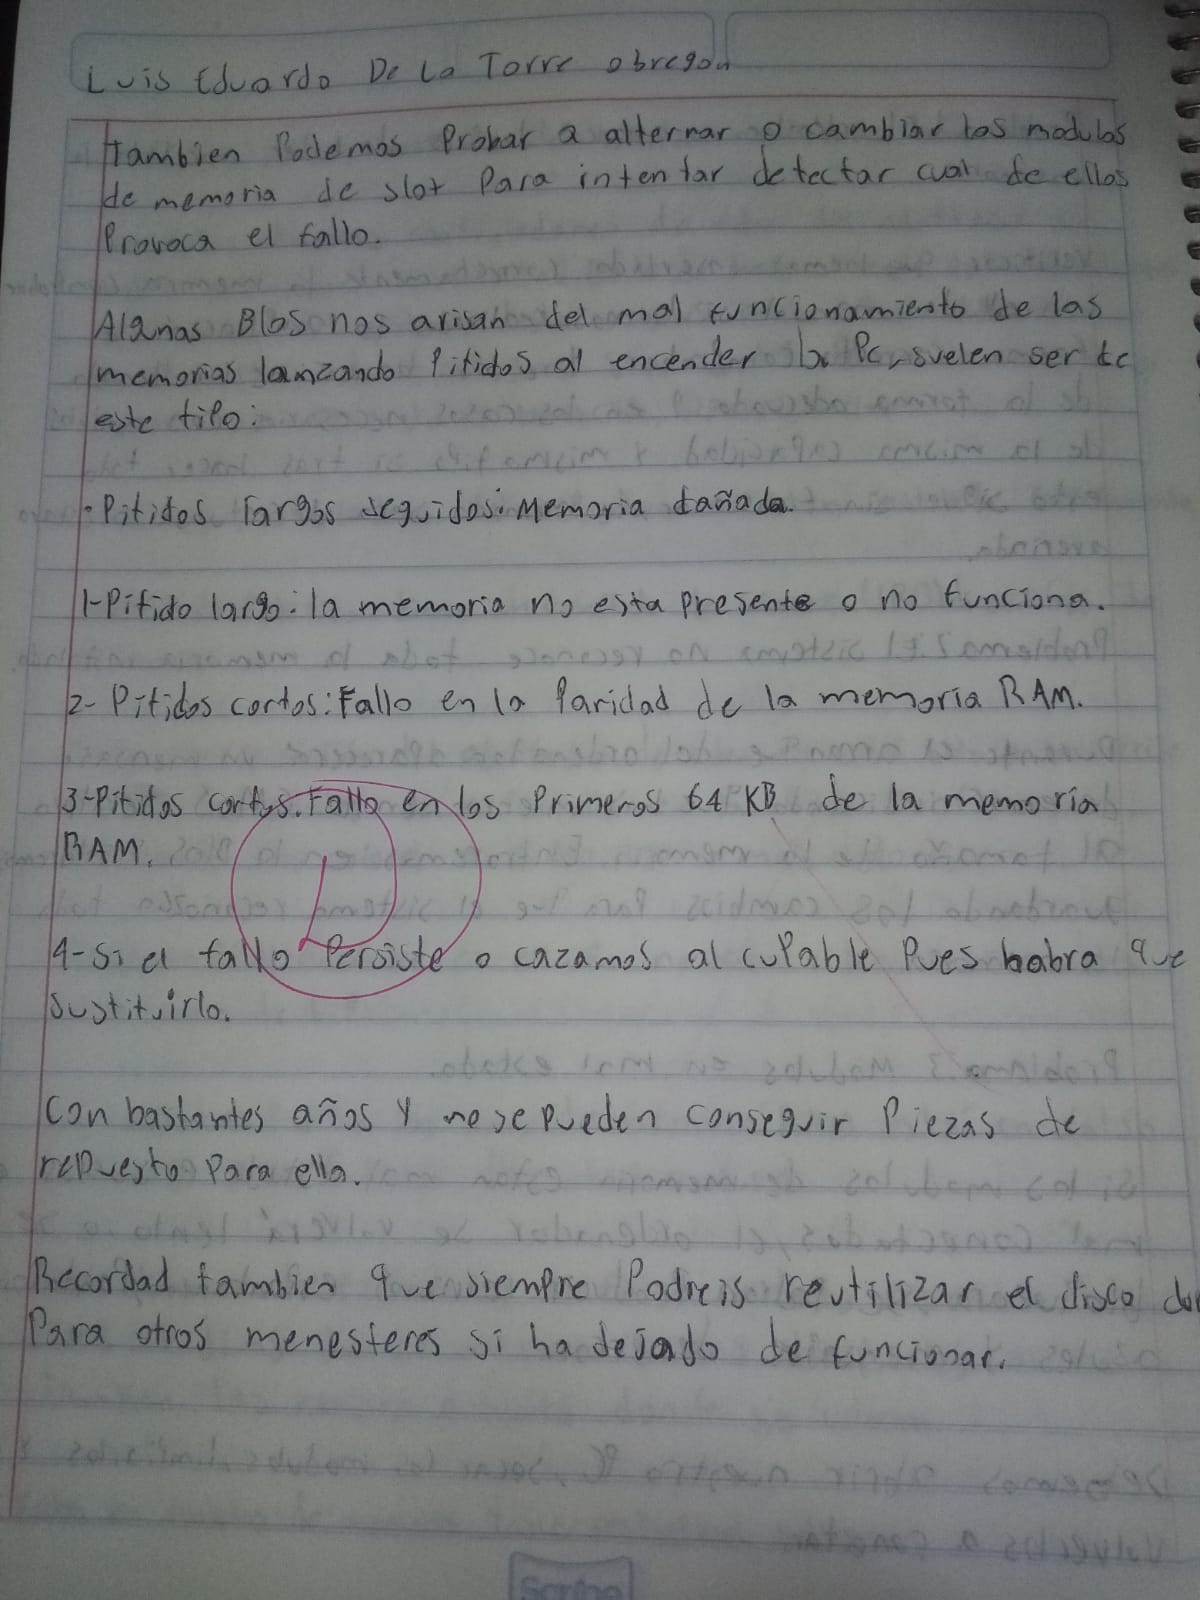 Luis Eduardo De La Torre obregon
tambien Podemos Probar a alternar o cambiar los modulos
de memoria de slot Para intentar detectar cual de ellos
Provoca el fallo.
Algunas BIos nos avisan del mal funcionamiento de las
memorias lanzando Pitidos al encender la Pc, suelen ser de
este tipo:
· Pitidos largos seguidos: Memoria dañada.
1-Pitido largo: la memoria no esta presente o no funciona.
2- Pitidos cortos: Fallo en la Paridad de la memoria RAM.
3-Pitidos cortos. Fallo en los Primeros 64 KB de la memoria
RAM.
4- Si el fallo Persiste o cazamos al culPable Pues habra que
sustituirlo.
Con bastantes años Y no se pueden conseguir Piezas de
repuesto Para ella.
Recordad tambien que siempre Podreis reutilizar el disco du
Para otros menesteres si ha dejado de funcionar.
Scribe